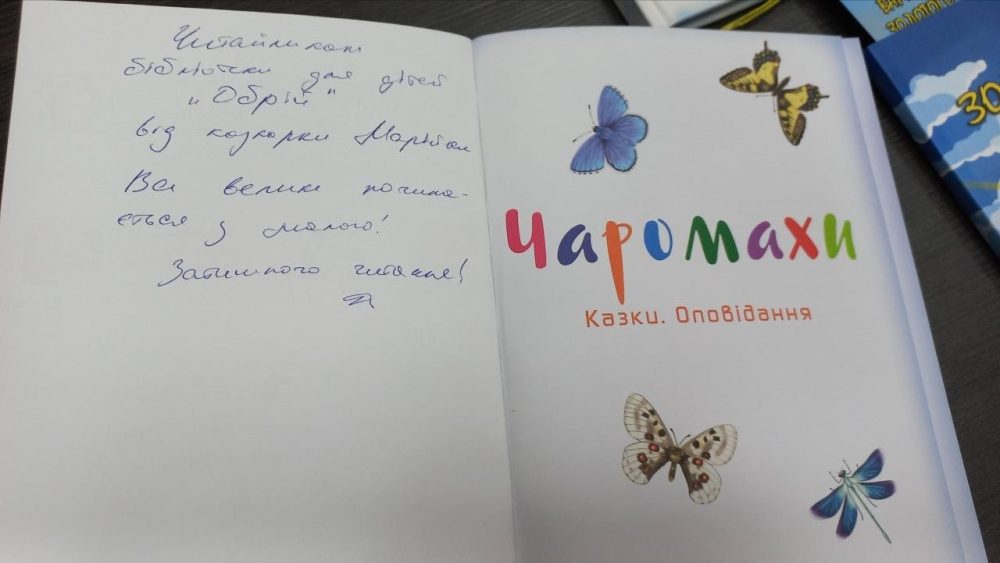 Читайликам
бібліотеки для дітей
"Обрій"
від казкарки Марійки
Все велике почина-
ється з малого!
Затишного читання!
Чаромахи
Казки. Оповідання
ЗОЛОТОГО
ЗО